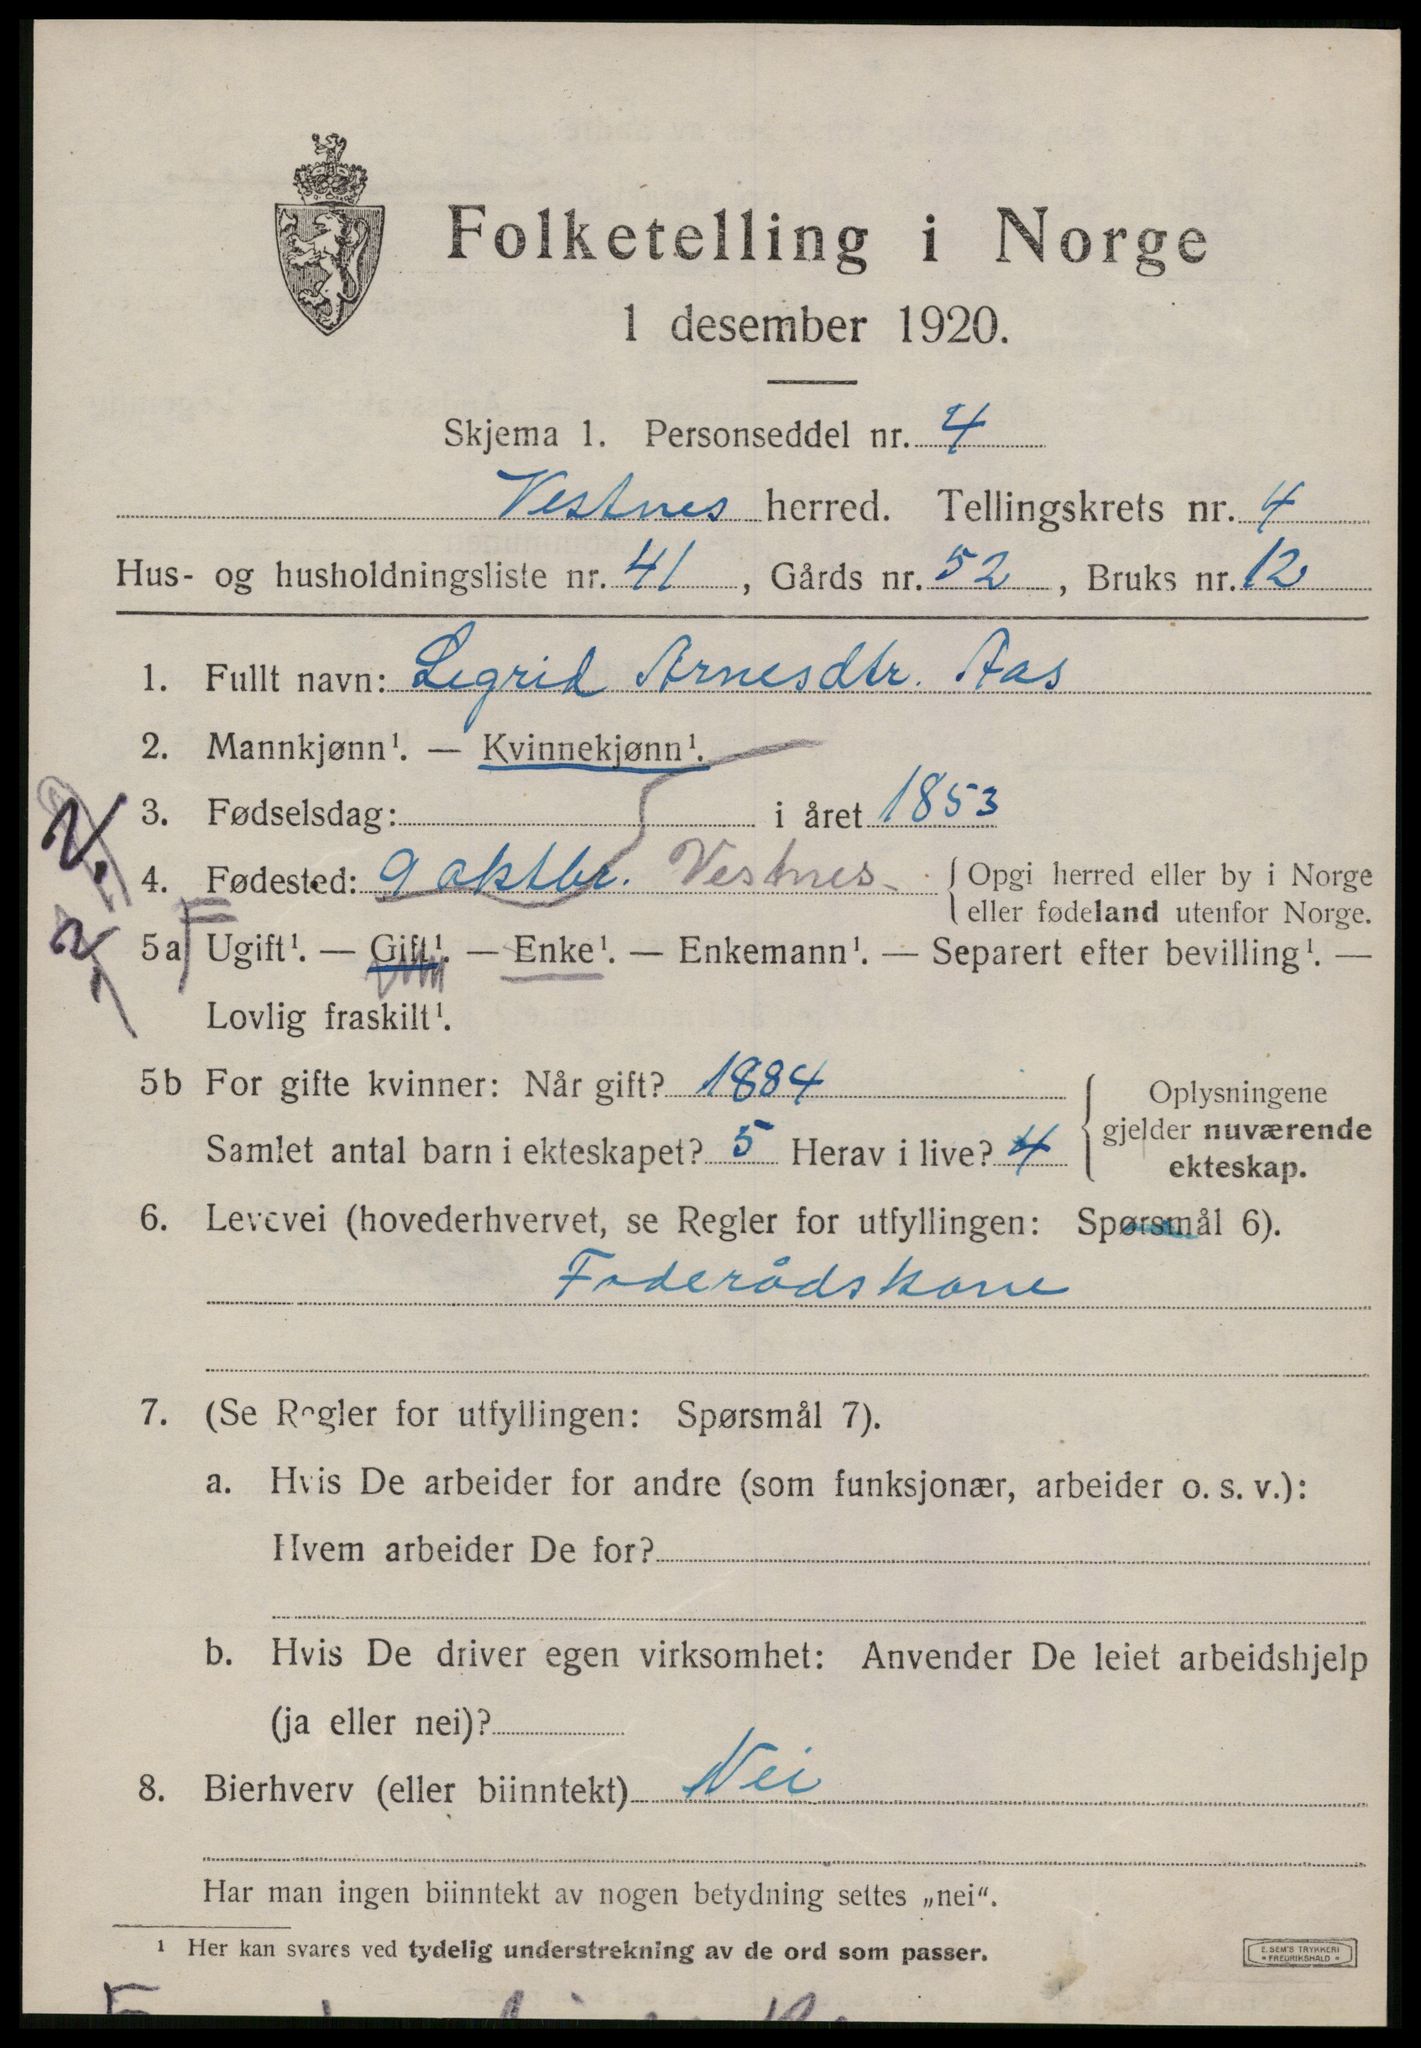 Folketelling i Norge
1 desember 1920.
Skjema 1. Personseddel nr. 4
Vestnes herred. Tellingskrets nr. 4
Hus- og husholdningsliste nr. 41, Gårds nr. 52, Bruks nr. 12
1. Fullt navn: Sigrid Arnesdtr. Aas
2. Mannkjønn¹. — Kvinnekjønn¹.
3. Fødselsdag: i året 1853
4. Fødested: 9 oktbr. Vestnes { Opgi herred eller by i Norge
eller fødeland utenfor Norge.
5a Ugift¹. — Gift¹. — Enke¹. — Enkemann¹. — Separert efter bevilling¹. —
Lovlig fraskilt¹.
5b For gifte kvinner: Når gift? 1884
Samlet antal barn i ekteskapet? 5 Herav i live? 4
{ Oplysningene
gjelder nuværende
ekteskap.
6. Levevei (hovederhvervet, se Regler for utfyllingen: Spørsmål 6).
Foderådskone
7. (Se Regler for utfyllingen: Spørsmål 7).
a. Hvis De arbeider for andre (som funksjonær, arbeider o. s. v.):
Hvem arbeider De for?
b. Hvis De driver egen virksomhet: Anvender De leiet arbeidshjelp
(ja eller nei)?
8. Bierhverv (eller biinntekt) Nei
Har man ingen biinntekt av nogen betydning settes „nei“.
¹ Her kan svares ved tydelig understrekning av de ord som passer.
E. SEM'S TRYKKERI
• FREDRIKSHALD •